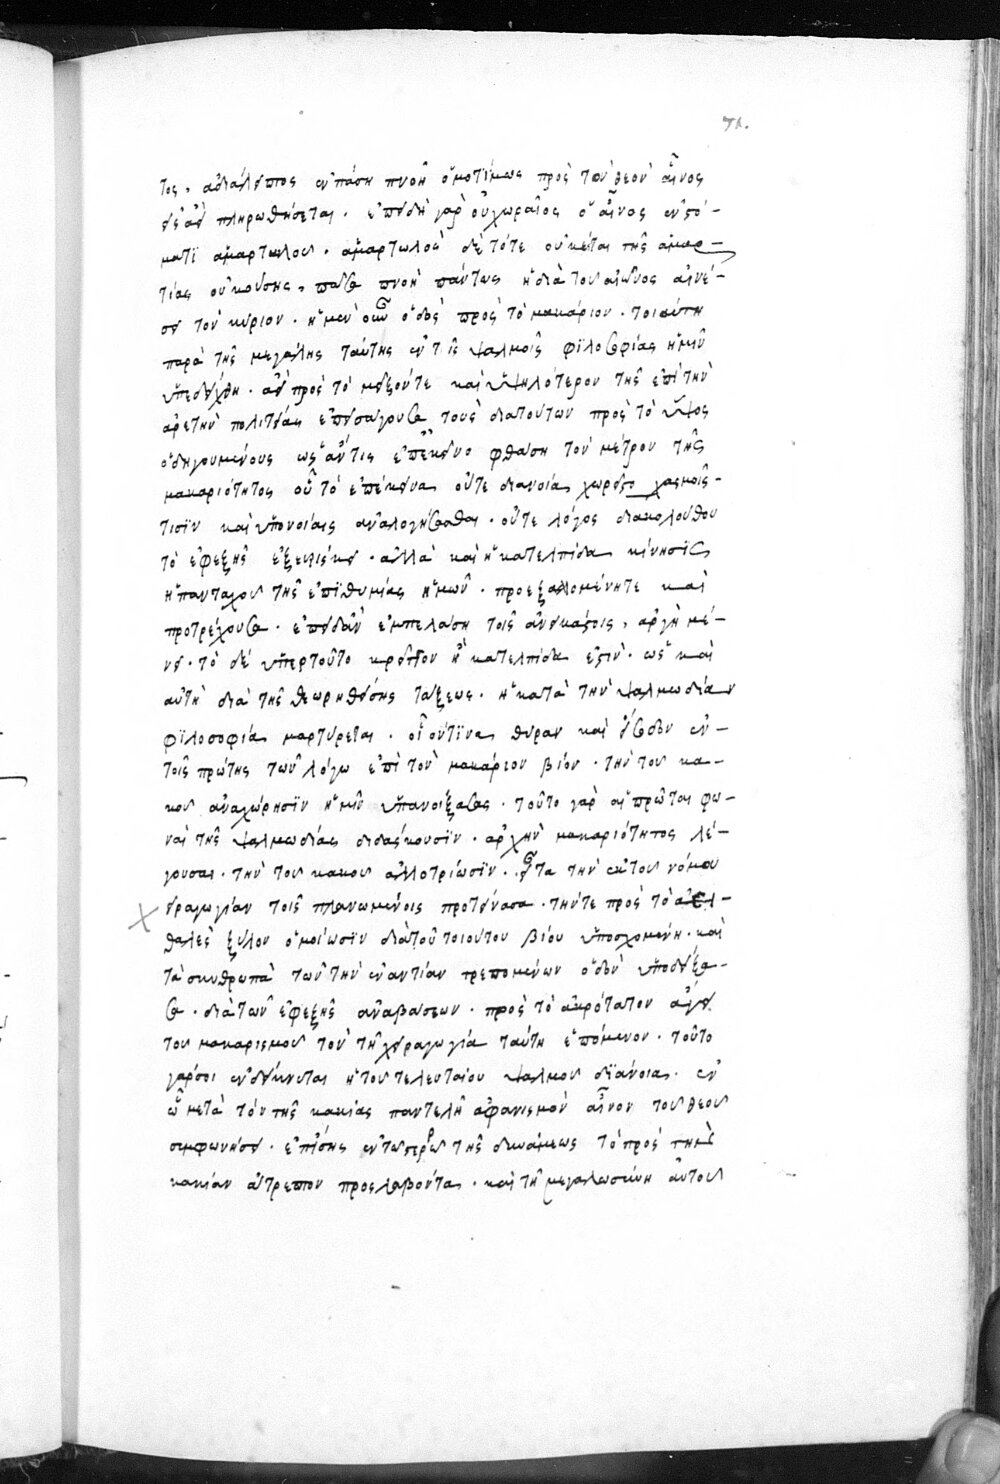 71.
τος, ἀδιάλειπτος ἐν πάση πνοῆ ὁμοτίμως πρὸς τὸν θεὸν αἶνος
εἰσαεὶ πληρωθήσεται. ἐπειδὴ γὰρ οὐχ ὡραῖος ὁ αἶνος ἐν στό-
ματι ἁμαρτωλοῦ. ἁμαρτωλὸς δὲ τότε οὐκ ἔσται τῆς ἁμαρ-
τίας οὐκ οὔσης, πᾶσα πνοὴ πάντως ἡ διὰ τοῦ αἰῶνος αἰνέ-
σει τὸν κύριον. ἡ μὲν οὖν ὁδὸς πρὸς τὸ μακάριον. τοιαύτη
παρὰ τῆς μεγάλης ταύτης ἐν τοῖς ψαλμοῖς φιλοσοφίας ἡμῖν
ὑπεδείχθη. ἀεὶ πρὸς τὸ μεῖζόν τε καὶ ὑψηλότερον τῆς ἐπὶ τὴν
ἀρετὴν πολιτείας ἐπεισάγουσα τοὺς διὰ τούτων πρὸς τὸ ὕψος
ὁδηγουμένους ὡς ἄν τις ἐπ' ἐκεῖνο φθάση τὸν μέτρον τῆς
μακαριότητος οὗ τὸ ἐπέκεινα οὔτε διανοία χωρεῖ στοχασμοῖς
τισὶν καὶ ὑπονοίαις ἀναλογήσασθαι. οὔτε λόγος διακολούθου
τὸ ἐφεξῆς ἐξευρίσκει. ἀλλὰ καὶ ἡ κατ' ἐλπίδα κίνησις
ἡ πανταχοῦ τῆς ἐπιθυμίας ἡμῶν. προεξαλομένη τε καὶ
προτρέχουσα. ἐπειδὰν ἐμπελάση τοῖς ἀνεικάστοις, ἀργὴ μέ-
νει. τὸ δὲ ὑπὲρ τοῦτο κρεῖττον ἢ κατ' ἐλπίδα ἐστὶν. ὡς καὶ
αὐτὴ διὰ τῆς θεωρηθείσης τάξεως. ἡ κατὰ τὴν ψαλμωδίαν
φιλοσοφία μαρτύρεται. οἱονεί τινα θύραν καὶ εἴσοδον ἐν
τοῖς πρώτης τῶν λόγω ἐπὶ τὸν μακάριον βίον. τὴν τοῦ κα-
κοῦ ἀναχώρησιν ἡμῖν ὑπανοίξασα. τοῦτο γὰρ αἱ πρῶται φω-
ναὶ τῆς ψαλμωδίας διδάσκουσιν. ἀρχὴν μακαριότητος λέ-
γουσαι. τὴν τοῦ κακοῦ ἀλλοτρίωσιν. εἶτα τὴν ἐκ τοῦ νόμου
χειραγωγίαν τοῖς πλανωμένοις προτείνασα. τήν τε πρὸς τὸ ἀει-
θαλὲς ξύλον ὁμοίωσιν διὰ τοῦ τοιούτου βίου ὑποσχομένη. καὶ
τὰ σκυθρωπὰ τῶν τὴν ἐναντίαν τρεπομένων ὁδὸν ὑποδείξα-
σα. διὰ τῶν ἐφεξῆς ἀναβάσεων. πρὸς τὸ ἀκρότατον ἄγει
τοῦ μακαρισμοῦ τὸν τῆ χειραγωγία ταύτη ἑπόμενον. τοῦτο
γάρ σοι ἐνδείκνυται ἡ τοῦ τελευταίου ψαλμοῦ διάνοια. ἐν
ὧ μετὰ τὸν τῆς κακίας παντελῆ ἀφανισμὸν αἶνον τοῦ θεοῦ
συμφωνήσει. ἐπίσης ἐν τῶ στερρῶ τῆς δυνάμεως τὸ πρὸς τὴν
κακίαν ἄτρεπτον προσλαβόντα. καὶ τῆ μεγαλωσύνη αὐτοῦ